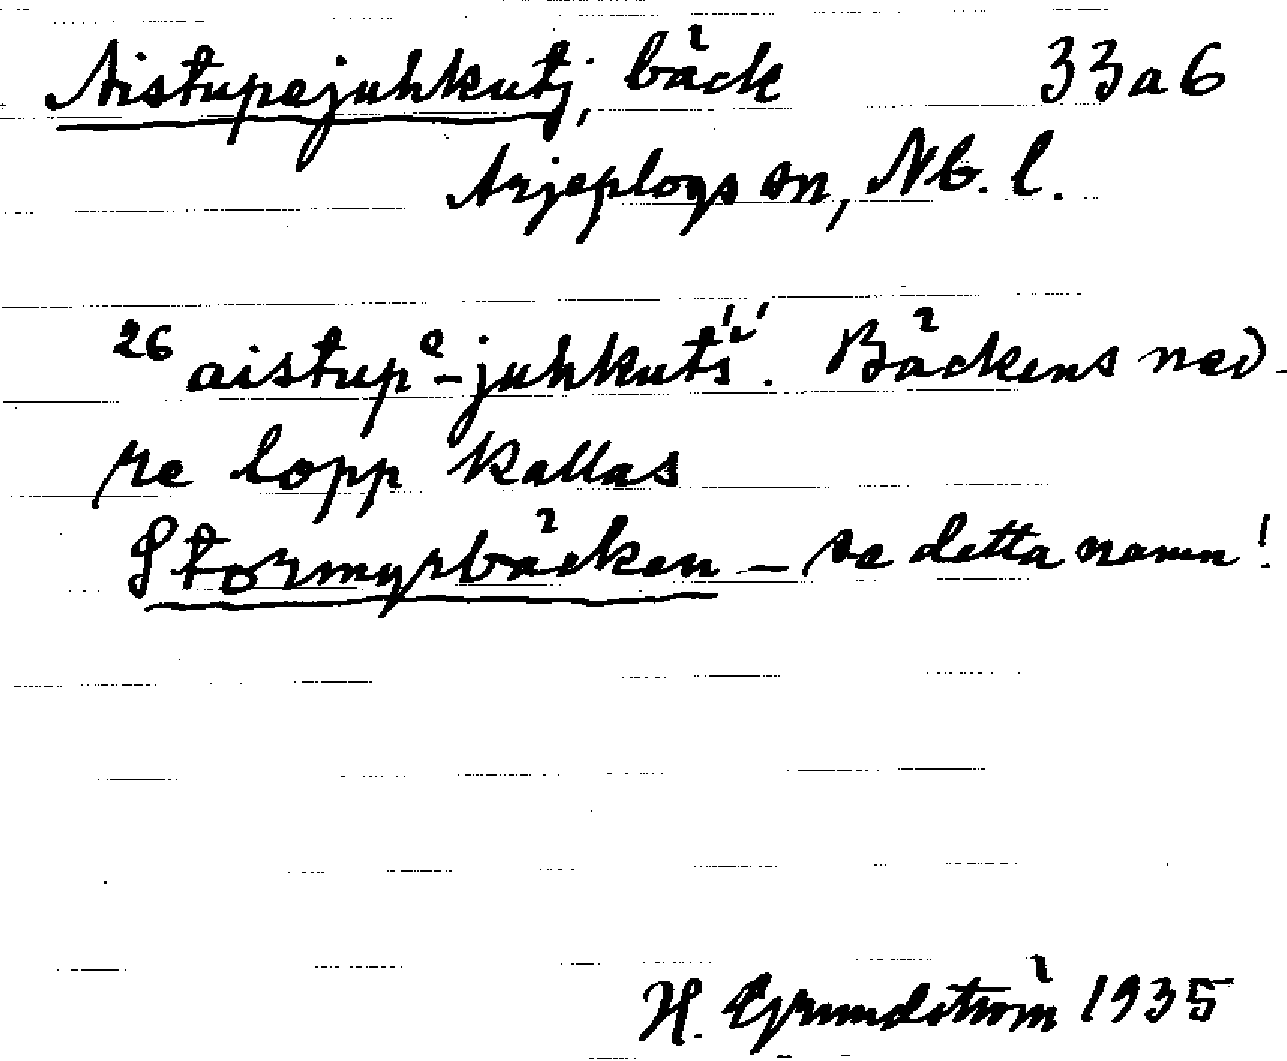 Aistupejuhkutj, bäck 33a6
Arjeplogs sn, Nb. l.
26 aistupᵉ-juhkutś'. Bäckens ned-
re lopp kallas
Stormyrbäcken – se detta namn!
H. Grundström 1935